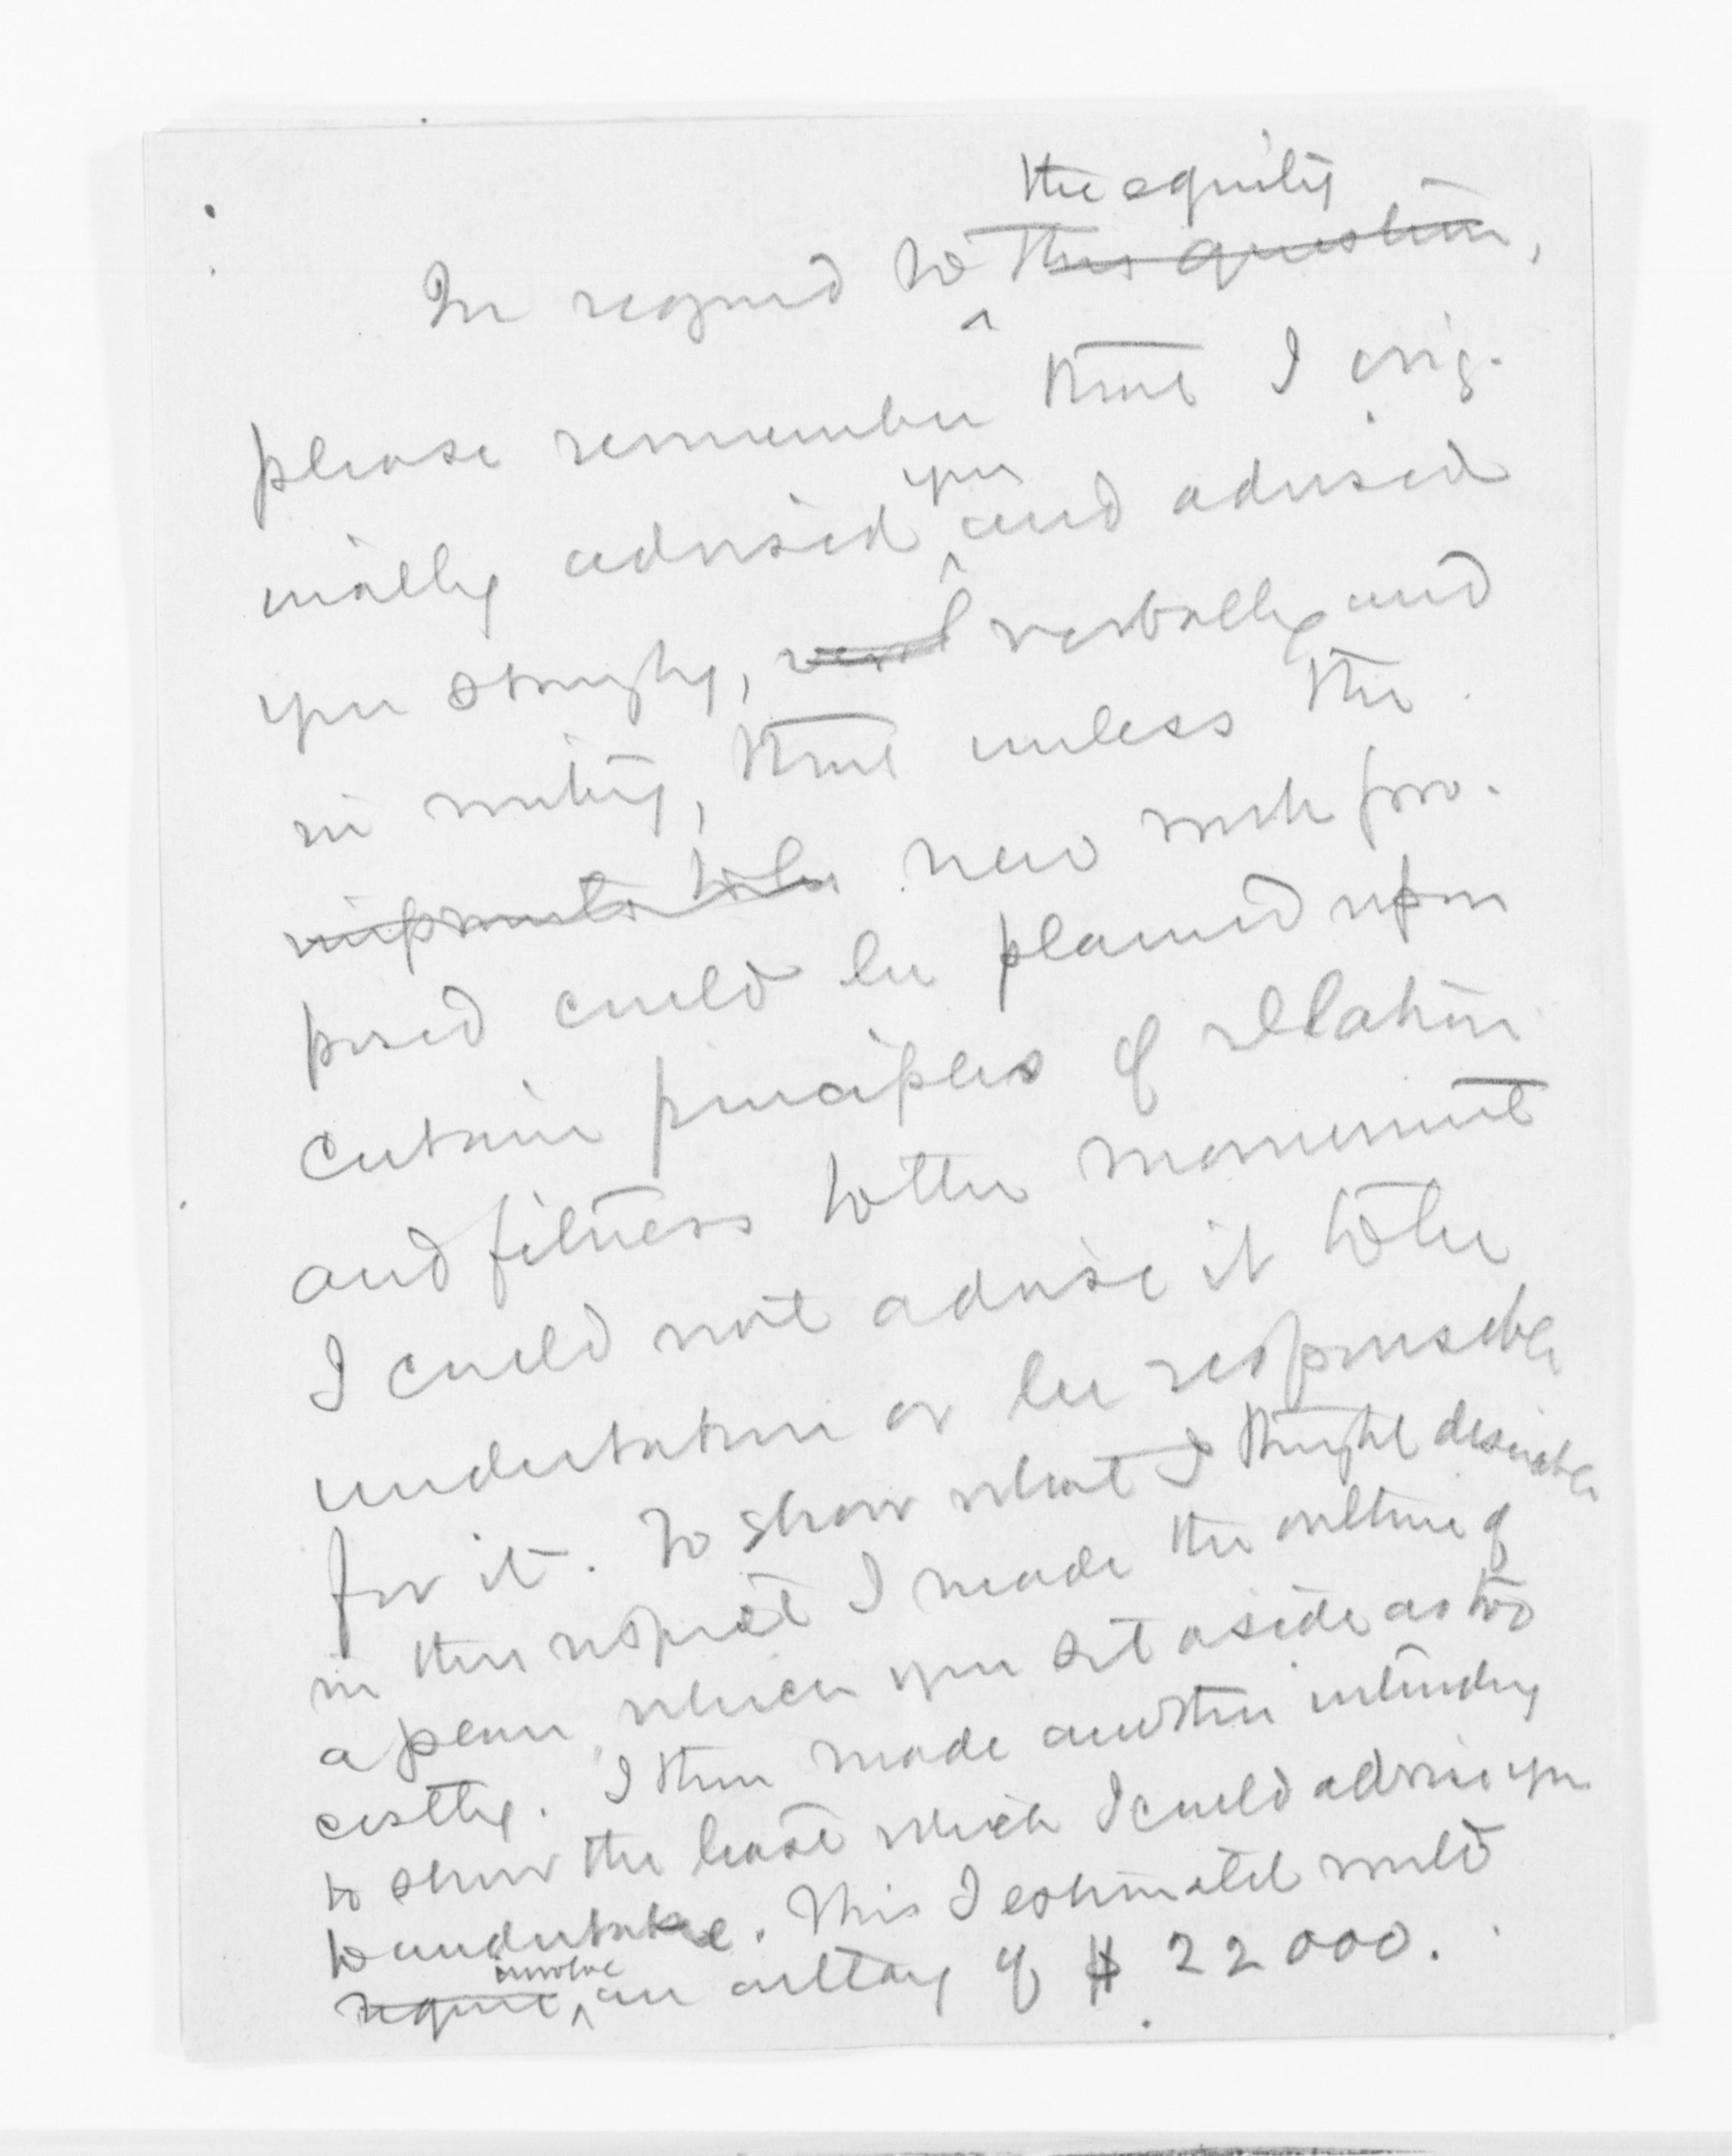 the equity
In regard to this question,
please remember that I orig-
inally advised you and advised
you strongly, verbally and
in writing, that unless the
improvements to be new work pro-
posed could be planned upon
certain principles of relation
and fitness to the monument
I could not advise it to be
undertaken or be responsible
for it. To show what I thought desirable
in this respect I made the outline of
a plan which you set aside as too
costly. I then made another intending
to show the least which I could advise you
to undertake. This I estimated would
involve
require an outlay of $22000.